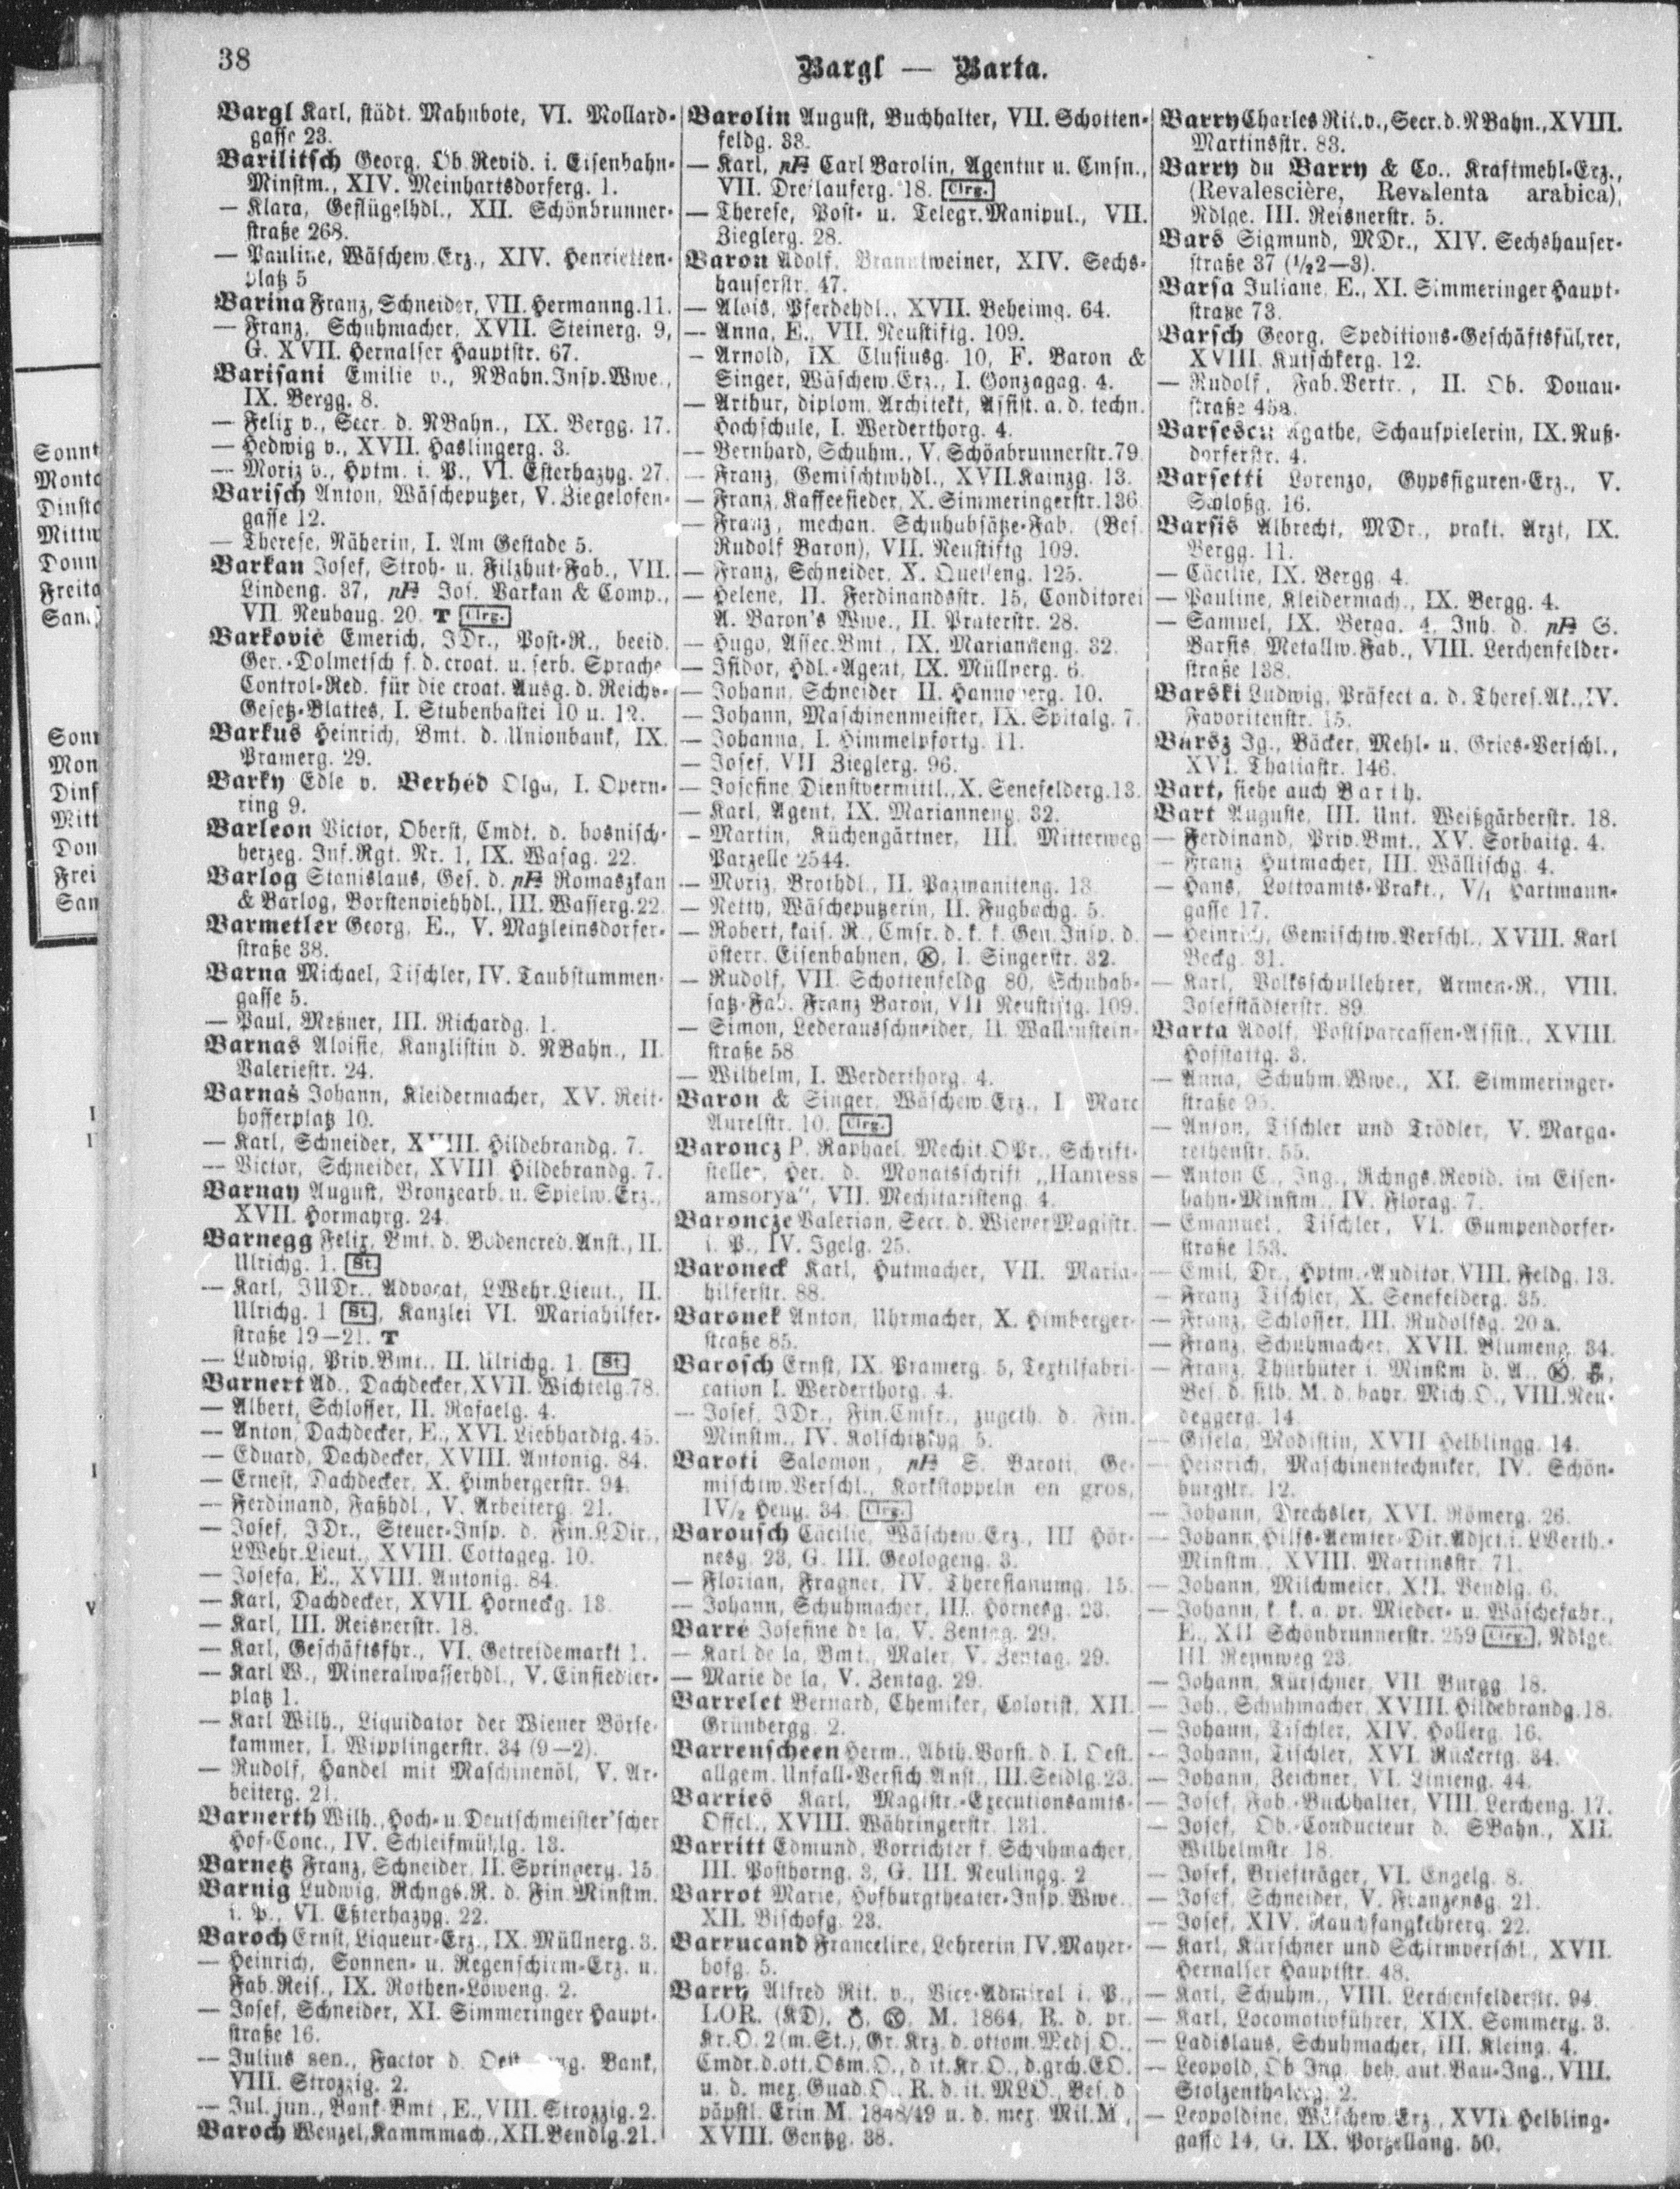 38
Bargl — Barta.
Sonnt
Mont
Dinst
Mittw
Donn
Freita
Sonn
Mon
Dinf
Mitt
Don
Frei
San
Bargl Karl, städt. Mahnbote, VI. Mollard-
gasse 23.
Barilitsch Georg, Ob. Revid. i. Eisenbahn-
Minstm., XIV. Meinhartsdorferg. 1.
— Klara, Geflügelhdl., XII. Schönbrunner-
straße 268.
— Pauline, Wäschew. Erz., XIV. Henrietten-
platz 5
Barina Franz, Schneider, VII. Hermanng. 11.
— Franz, Schuhmacher, XVII. Steinerg. 9,
G. XVII. Hernalser Hauptstr. 67.
Barisani Emilie v., NBahn. Insp. Wwe.,
IX. Bergg. 8.
— Felix v., Secr. d. NBahn., IX. Bergg. 17.
— Hedwig v., XVII. Haslingerg. 3.
— Moriz v., Hptm. i. P., VI. Esterhazyg. 27.
Barisch Anton, Wäscheputzer, V. Ziegelofen-
gasse 12.
— Therese, Näherin, I. Am Gestade 5.
Barkan Josef, Stroh- u. Filzhut-Fab., VII.
Lindeng. 37, pF Jos. Barkan & Comp.,
VII. Neubaug. 20. T Clrg.
Barković Emerich, JDr., Post-R., beeid.
Ger.-Dolmetsch f. d. croat. u. serb. Sprache
Control-Red. für die croat. Ausg. d. Reichs-
Gesetz-Blattes, I. Stubenbastei 10 u. 12.
Barkus Heinrich, Bmt. d. Unionbank, IX.
Pramerg. 29.
Barky Edle v. Berhéd Olga, I. Opern-
ring 9.
Barleon Victor, Oberst, Cmdt. d. bosnisch-
herzeg. Inf. Rgt. Nr. 1, IX. Wasag. 22.
Barlog Stanislaus, Ges. d. pF Romaszkan
& Barlog, Borstenviehhdl., III. Wasserg. 22.
Barmetler Georg, E., V. Matzleinsdorfer-
straße 38.
Barna Michael, Tischler, IV. Taubstummen-
gasse 5.
— Paul, Meßner, III. Richardg. 1.
Barnas Aloisie, Kanzlistin d. NBahn., II.
Valeriestr. 24.
Barnaš Johann, Kleidermacher, XV. Reit-
hofferplatz 10.
— Karl, Schneider, XVIII. Hildebrandg. 7.
— Victor, Schneider, XVIII. Hildebrandg. 7.
Barnay August, Bronzearb. u. Spielw. Erz.,
XVII. Hormayrg. 24.
Barnegg Felix, Bmt. d. Bodencred. Anst., II.
Ulrichg. 1. St.
— Karl, JUDr., Advocat, LWehr. Lieut., II.
Ulrichg. 1 St., Kanzlei VI. Mariahilfer-
straße 19—21. T
— Ludwig, Priv. Bmt., II. Ulrichg. 1. St.
Barnert Ad., Dachdecker, XVII. Wichtelg. 78.
— Albert, Schlosser, II. Rafaelg. 4.
— Anton, Dachdecker, E., XVI. Liebhardtg. 45.
— Eduard, Dachdecker, XVIII. Antonig. 84.
— Ernest, Dachdecker, X. Himbergerstr. 94.
— Ferdinand, Faßhdl., V. Arbeiterg. 21.
— Josef, JDr., Steuer-Insp. d. Fin. LDir.,
LWehr. Lieut., XVIII. Cottageg. 10.
— Josefa, E., XVIII. Antonig. 84.
— Karl, Dachdecker, XVII. Horneckg. 13.
— Karl, III. Reisnerstr. 18.
— Karl, Geschäftsfhr., VI. Getreidemarkt 1.
— Karl W., Mineralwasserhdl., V. Einsiedler-
platz 1.
— Karl Wilh., Liquidator der Wiener Börse-
kammer, I. Wipplingerstr. 34 (9—2).
— Rudolf, Handel mit Maschinenöl, V. Ar-
beiterg. 21.
Barnerth Wilh., Hoch- u. Deutschmeister'scher
Hof-Conc., IV. Schleifmühlg. 13.
Barnetz Franz, Schneider, II. Springerg. 15.
Barnig Ludwig, Rchngs. R. d. Fin. Minstm.
i. P., VI. Eßterhazyg. 22.
Baroch Ernst, Liqueur-Erz., IX. Müllnerg. 3.
— Heinrich, Sonnen- u. Regenschirm-Erz. u.
Fab. Reis., IX. Rothen-Löweng. 2.
— Josef, Schneider, XI. Simmeringer Haupt-
straße 16.
— Julius sen., Factor d. Bank,
VIII. Strozzig. 2.
— Jul. jun., Bank-Bmt., E., VIII. Strozzig. 2.
Baroch Wenzel, Kammmach., XII. Bendlg. 21.
Barolin August, Buchhalter, VII. Schotten-
feldg. 33.
— Karl, pF Carl Barolin, Agentur u. Cmsn.,
VII. Dreilauferg. 18. Clrg.
— Therese, Post- u. Telegr. Manipul., VII.
Zieglerg. 28.
Baron Adolf, Branntweiner, XIV. Sechs-
hauserstr. 47.
— Alois, Pferdehdl., XVII. Beheimg. 64.
— Anna, E., VII. Neustiftg. 109.
— Arnold, IX. Clusiusg. 10, F. Baron &
Singer, Wäschew. Erz., I. Gonzagag. 4.
— Arthur, diplom. Architekt, Assist. a. d. techn.
Hochschule, I. Werderthorg. 4.
— Bernhard, Schuhm., V. Schönbrunnerstr. 79.
— Franz, Gemischtwhdl., XVII. Kainzg. 13.
— Franz, Kaffeesieder, X. Simmeringerstr. 136.
— Franz, mechan. Schuhabsätze-Fab. (Bes.
Rudolf Baron), VII. Neustiftg 109.
— Franz, Schneider, X. Quelleng. 125.
— Helene, II. Ferdinandsstr. 15, Conditorei
A. Baron's Wwe., II. Praterstr. 28.
— Hugo, Assec. Bmt., IX. Marianneng. 32.
— Isidor, Hdl.-Agent, IX. Müllnerg. 6.
— Johann, Schneider, II. Hannoverg. 10.
— Johann, Maschinenmeister, IX. Spitalg. 7.
— Johanna, I. Himmelpfortg. 11.
— Josef, VII. Zieglerg. 96.
— Josefine, Dienstvermittl., X. Senefelderg. 13.
— Karl, Agent, IX. Marianneng. 32.
— Martin, Küchengärtner, III. Mitterweg
Parzelle 2544.
— Moriz, Brothdl., II. Pazmaniteng. 13.
— Netty, Wäscheputzerin, II. Fugbachg. 5.
— Robert, kais. R., Cmsr. d. k. k. Gen. Insp. d.
österr. Eisenbahnen, I. Singerstr. 32.
— Rudolf, VII. Schottenfeldg. 80, Schuhab-
satz-Fab. Franz Baron, VII. Neustiftg. 109.
— Simon, Lederausschneider, II. Wallenstein-
straße 58
— Wilhelm, I. Werderthorg. 4.
Baron & Singer, Wäschew. Erz., I. Marc
Aurelstr. 10. Clrg.
Baroncz P. Raphael, Mechit. OPr., Schrift-
steller, Her. d. Monatsschrift „Hantess
amsorya“, VII. Mechitaristeng. 4.
Baroncze Valerian, Secr. d. Wiener Magistr.
i. P., IV. Igelg. 25.
Baroneck Karl, Hutmacher, VII. Maria-
hilferstr. 88.
Baronek Anton, Uhrmacher, X. Himberger-
straße 85.
Barosch Ernst, IX. Pramerg. 5, Textilfabri-
cation I. Werderthorg. 4.
— Josef, JDr., Fin. Cmsr., zugeth. d. Fin.
Minstm., IV. Kolschitzkyg. 5.
Baroti Salomon, pF S. Baroti, Ge-
mischtw. Verschl., Korkstoppeln en gros,
IV/2 Heug. 34. Clrg.
Barousch Cäcilie, Wäschew. Erz., III. Hör-
nesg. 23, G. III. Geologeng. 3.
— Florian, Fragner, IV. Theresianumg. 15.
— Johann, Schuhmacher, III. Hörnesg. 23.
Barré Josefine de la, V. Zentag. 29.
— Karl de la, Bmt., Maler, V. Zentag. 29.
— Marie de la, V. Zentag. 29.
Barrelet Bernard, Chemiker, Colorist, XII.
Grünbergg. 2.
Barrenscheen Herm., Abth. Vorst. d. I. Oest.
allgem. Unfall-Versich. Anst., III. Seidlg. 23.
Barries Karl, Magistr.-Executionsamts-
Offcl., XVIII. Währingerstr. 131.
Barritt Edmund, Vorrichter f. Schuhmacher,
III. Posthorng. 3, G. III. Reulingg. 2
Barrot Marie, Hofburgtheater-Insp. Wwe.
XII. Bischofg. 23.
Barrucand Franceline, Lehrerin, IV. Mayer-
hofg. 5.
Barry Alfred Rit. v., Vice-Admiral i. P.,
LOR. (KD), M. 1864, R. d. pr.
Kr. O. 2 (m. St.), Gr. Krz. d. ottom. Medj. O.,
Cmdr. d. ott. Osm. O., d. it. Kr. O., d. grch. EO.
u. d. mex. Guad. O., R. d. it. MLO., Bes. d.
päpstl. Erin. M. 1848/49 u. d. mex. Mil. M.,
XVIII. Gentzg. 38.
Barry Charles Rit. v., Secr. d. NBahn., XVIII.
Martinsstr. 83.
Barry du Barry & Co., Kraftmehl-Erz.,
(Revalescière, Revalenta arabica),
Ndlge. III. Reisnerstr. 5.
Bars Sigmund, MDr., XIV. Sechshauser-
straße 37 (½2—3).
Barsa Juliane, E., XI. Simmeringer Haupt-
straße 73.
Barsch Georg, Speditions-Geschäftsführer,
XVIII. Kutschkerg. 12.
— Rudolf, Fab. Vertr., II. Ob. Donau-
straße 45a.
Barsescu Agathe, Schauspielerin, IX. Nuß-
dorferstr. 4.
Barsetti Lorenzo, Gypsfiguren-Erz., V.
Schloßg. 16.
Barsis Albrecht, MDr., prakt. Arzt, IX.
Bergg. 11.
— Cäcilie, IX. Bergg. 4.
— Pauline, Kleidermach., IX. Bergg. 4.
— Samuel, IX. Bergg. 4, Inh. d. pF S.
Barsis Metallw. Fab., VIII. Lerchenfelder-
straße 138.
Barski Ludwig, Präfect a. d. Theres. Ak., IV.
Favoritenstr. 15.
Barsz Ig., Bäcker, Mehl- u. Gries-Verschl.,
XVI. Thaliastr. 146.
Bart, siehe auch Barth.
Bart Auguste, III. Unt. Weißgärberstr. 18.
— Ferdinand, Priv. Bmt., XV. Sorbaitg. 4.
— Franz, Hutmacher, III. Wällischg. 4.
— Hans, Lottoamts-Prakt., V/1 Hartmann-
gasse 17.
— Heinrich, Gemischtw. Verschl., XVIII. Karl
Beckg. 31.
— Karl, Volksschullehrer, Armen-R., VIII.
Josefstädterstr. 89.
Barta Adolf, Postsparcassen-Assist., XVIII.
Hofstattg. 3.
— Anna, Schuhm. Wwe., XI. Simmeringer-
straße 95.
— Anton, Tischler und Trödler, V. Marga-
rethenstr. 55.
— Anton C., Ing., Rchngs. Revid. im Eisen-
bahn-Minstm., IV. Florag. 7.
— Emanuel, Tischler, VI. Gumpendorfer-
straße 153.
— Emil, Dr., Hptm.-Auditor, VIII. Feldg. 13.
— Franz, Tischler, X. Senefelderg. 35.
— Franz, Schlosser, III. Rudolfsg. 20 a.
— Franz, Schuhmacher, XVII. Blumeng. 34.
— Franz, Thürhüter i. Minstm. d. A.,
Bes. d. silb. M. d. bayr. Mich. O., VIII. Neu-
deggerg. 14.
— Gisela, Modistin, XVII. Helblingg. 14.
— Heinrich, Maschinentechniker, IV. Schön-
burgstr. 12.
— Johann, Drechsler, XVI. Römerg. 26.
— Johann, Hilfs-Aemter-Dir. Adjct. i. LVerth.-
Minstm., XVIII. Martinsstr. 71.
— Johann, Milchmeier, XII. Bendlg. 6.
— Johann, k. k. a. pr. Mieder- u. Wäschefabr.,
E., XII. Schönbrunnerstr. 259 Clrg., Ndlge.
III. Rennweg 23.
— Johann, Kürschner, VII. Burgg. 18.
— Joh., Schuhmacher, XVIII. Hildebrandg. 18.
— Johann, Tischler, XIV. Hollerg. 16.
— Johann, Tischler, XVI. Rückertg. 34.
— Johann, Zeichner, VI. Linieng. 44.
— Josef, Fab.-Buchhalter, VIII. Lercheng. 17.
— Josef, Ob.-Conducteur d. SBahn., XII.
Wilhelmstr. 18.
— Josef, Briefträger, VI. Engelg. 8.
— Josef, Schneider, V. Franzensg. 21.
— Josef, XIV. Rauchfangkehrerg. 22.
— Karl, Kürschner und Schirmverschl., XVII.
Hernalser Hauptstr. 48.
— Karl, Schuhm., VIII. Lerchenfelderstr. 94.
— Karl, Locomotivführer, XIX. Sommerg. 3.
— Ladislaus, Schuhmacher, III. Kleing. 4.
— Leopold, Ob. Ing., beh. aut. Bau-Ing., VIII.
Stolzenthalerg. 2.
— Leopoldine, Wäschew. Erz., XVII. Helbling-
gasse 14, G. IX. Porzellang. 50.